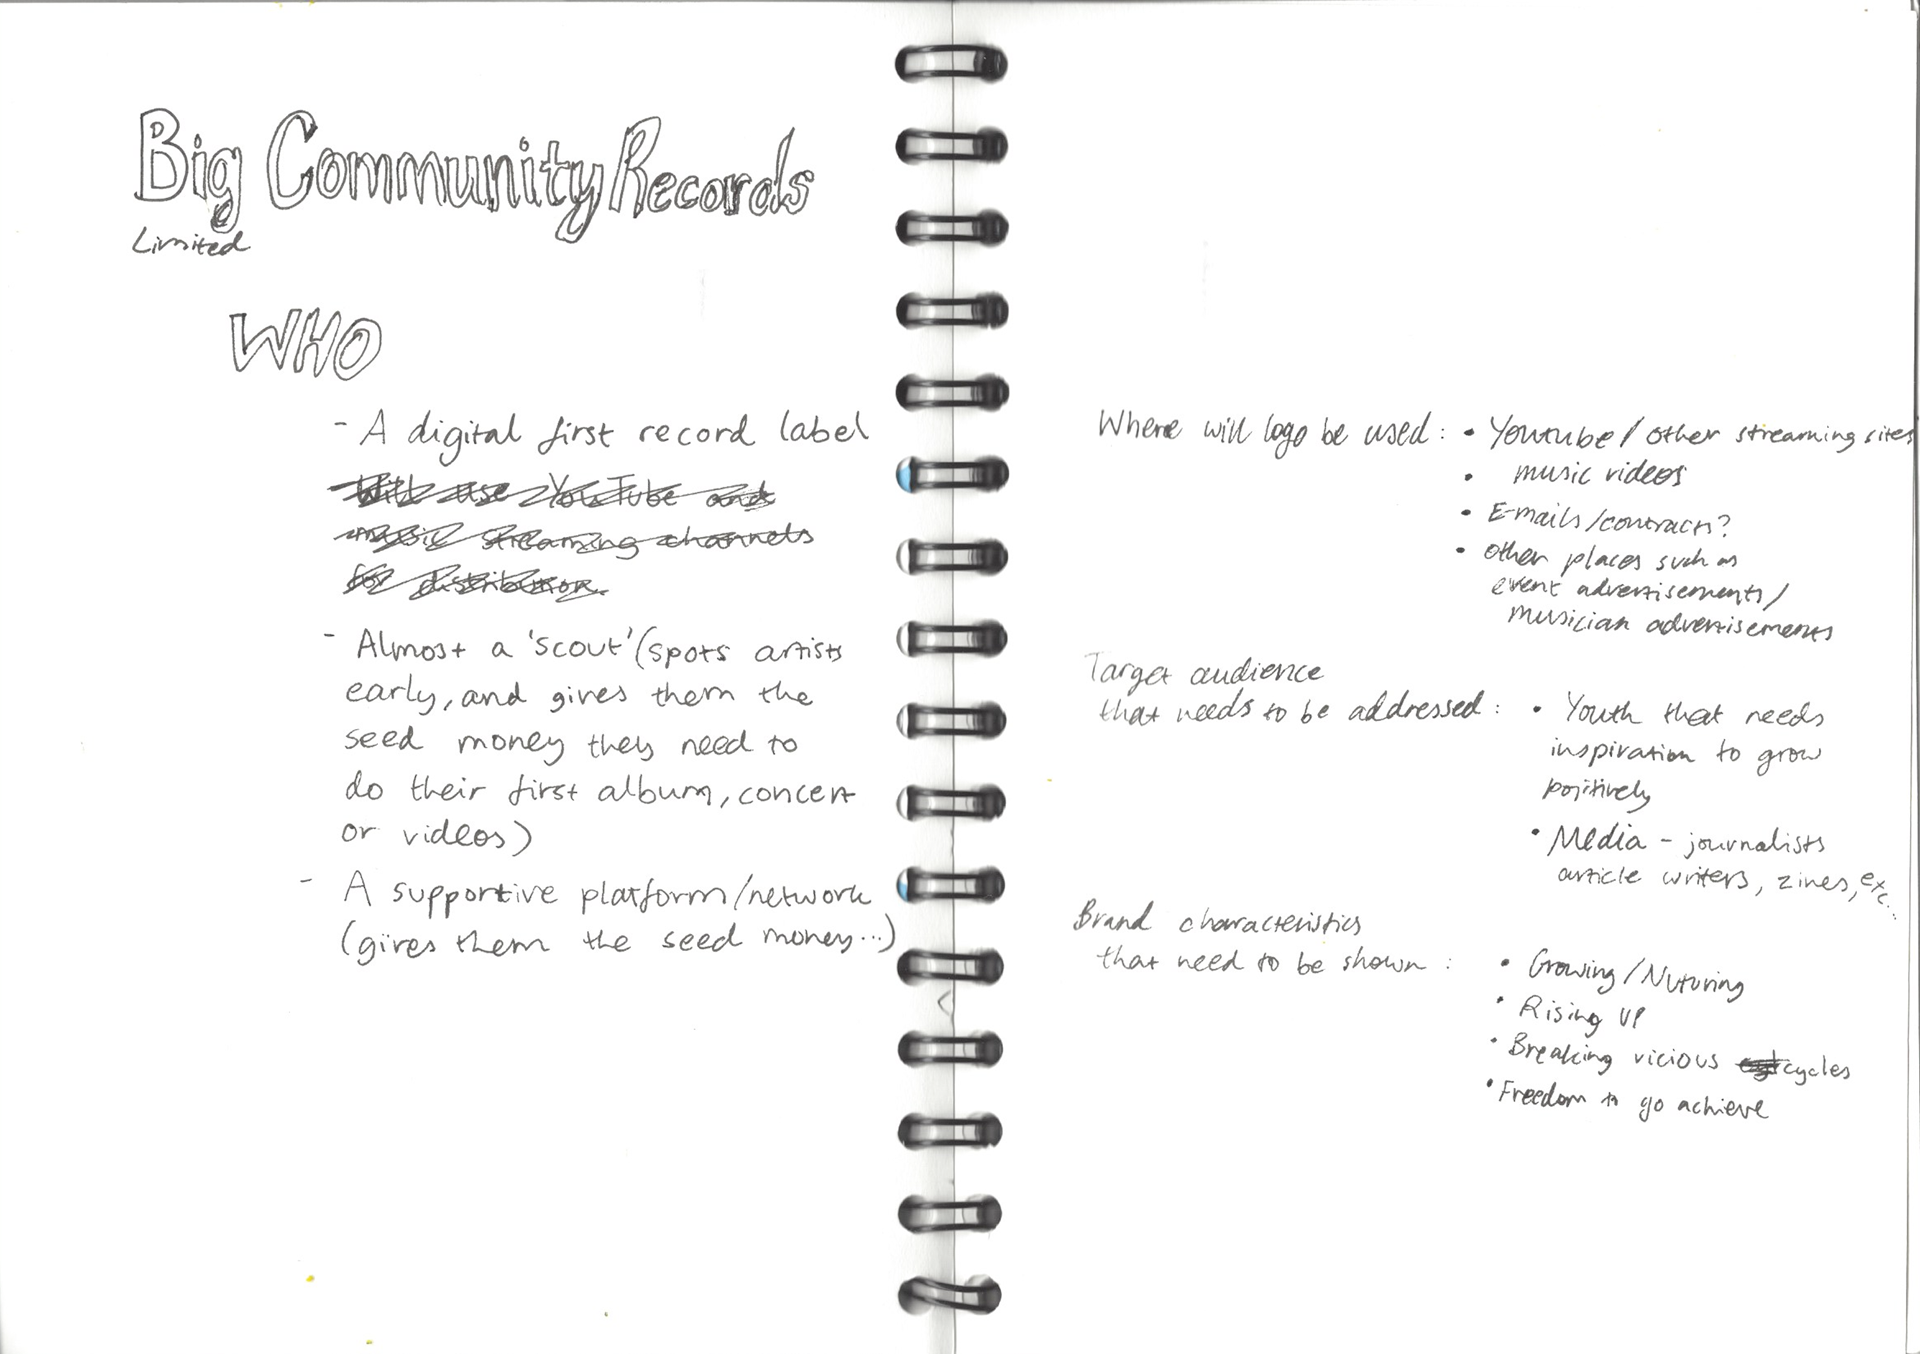 Big Community Records
Limited
WHO
- A digital first record label
Will use YouTube and
music streaming channels
for distribution.
- Almost a 'scout' (spots artists
early, and gives them the
seed money they need to
do their first album, concert
or videos)
- A supportive platform/network
(gives them the seed money...)
Where will logo be used : • Youtube / other streaming sites
• music videos
• E-mails/contracts?
• other places such as
event advertisements/
musician advertisements
Target audience
that needs to be addressed : • Youth that needs
inspiration to grow
positively
• Media - journalists
article writers, zines, exc...
Brand characteristics
that need to be shown : • Growing / Nuturing
• Rising UP
• Breaking vicious cycles
• Freedom to go achieve